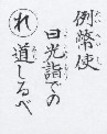 例幣使
日光詣での
れ 道しるべ